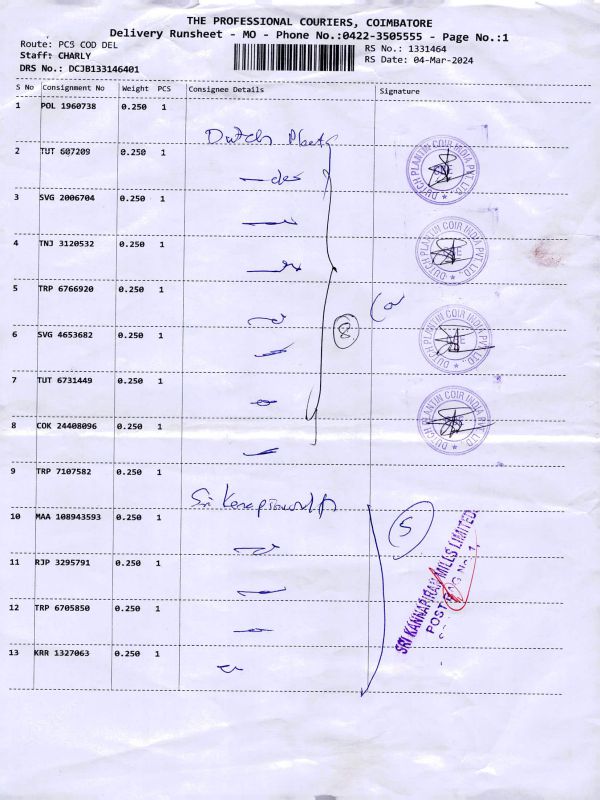 THE PROFESSIONAL COURIERS, COIMBATORE
Delivery Runsheet - MO - Phone No.:0422-3505555 - Page No.:1
Route: PCS COD DEL
RS No.: 1331464
Staff: CHARLY
RS Date: 04-Mar-2024
DRS No.: DCJB133146401
S No Consignment No Weight PCS Consignee Details Signature
1 POL 1960738 0.250 1
Dutch
2 TUT 607209 0.250 1
DUTCH PLANTIN COIR INDIA PVT. LTD.
3 SVG 2006704 0.250 1
4 TNJ 3120532 0.250 1
DUTCH PLANTIN COIR INDIA PVT. LTD.
5 TRP 6766920 0.250 1
6 SVG 4653682 0.250 1
8
DUTCH PLANTIN COIR INDIA PVT. LTD.
7 TUT 6731449 0.250 1
8 COK 24408096 0.250 1
DUTCH PLANTIN COIR INDIA PVT. LTD.
9 TRP 7107582 0.250 1
Sri
10 MAA 108943593 0.250 1
5
11 RJP 3295791 0.250 1
SRI KANNAPIRAN MILLS LIMITED
POST BAG No. 1,
12 TRP 6705850 0.250 1
13 KRR 1327063 0.250 1